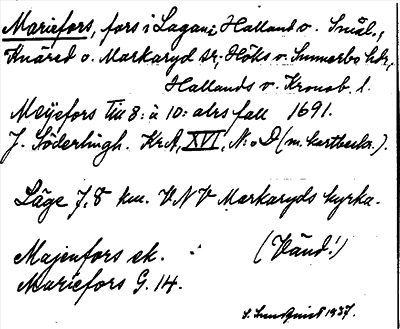 Mariefors, fors i Lagan i Halland o. Smål.,
Knäred o. Markaryd sr; Höks o. Sunnerbo hdr,
Hallands o. Kronob. l.
Meijefors till 8: à 10: alrs fall 1691.
J. Söderlingh. KrA, XVI, N:o D (m. kartbeskr.).
Läge 7,8 km. VNV Markaryds kyrka.
Majenfors ek. (Vänd!)
Mariefors G. 14.
S. Sundqvist 1937.